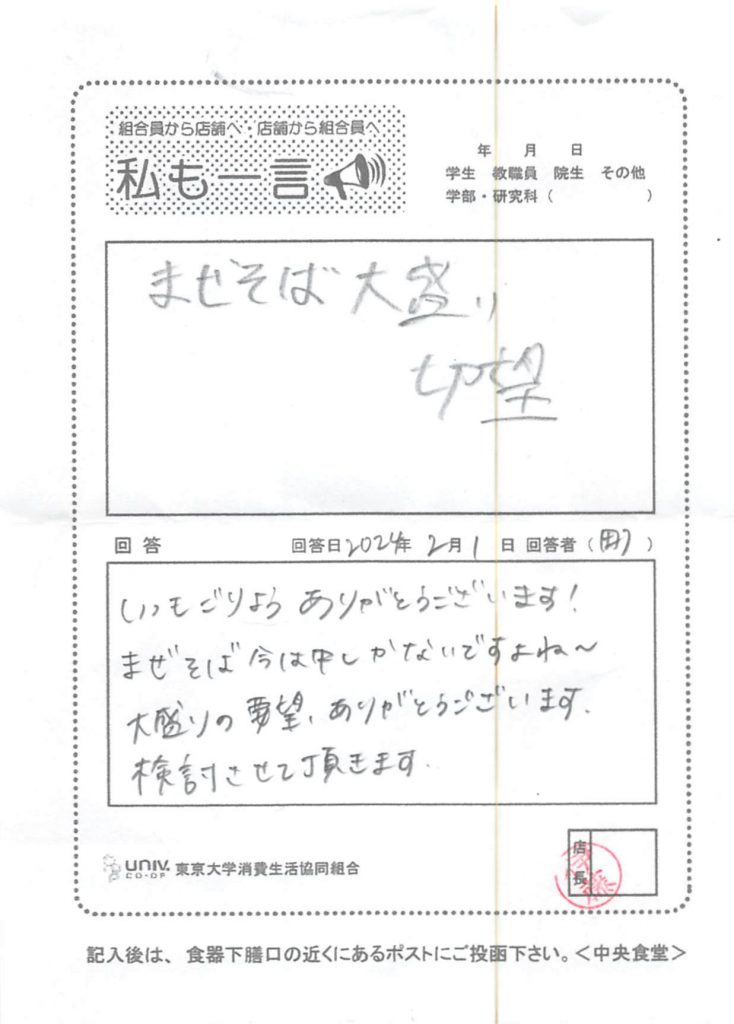 組合員から店舗へ・店舗から組合員へ
私も一言
年 月 日
学生 教職員 院生 その他
学部・研究科( )
まぜそば 大盛り
切望
回答 回答日2024年 2月1日 回答者( )
いつもごりよう ありがとうございます!
まぜそば 今は中しかないですよね〜
大盛りの要望、ありがとうございます.
検討させて頂きます.
UNIV. CO-OP 東京大学消費生活協同組合
店長
記入後は、食器下膳口の近くにあるポストにご投函下さい。<中央食堂>